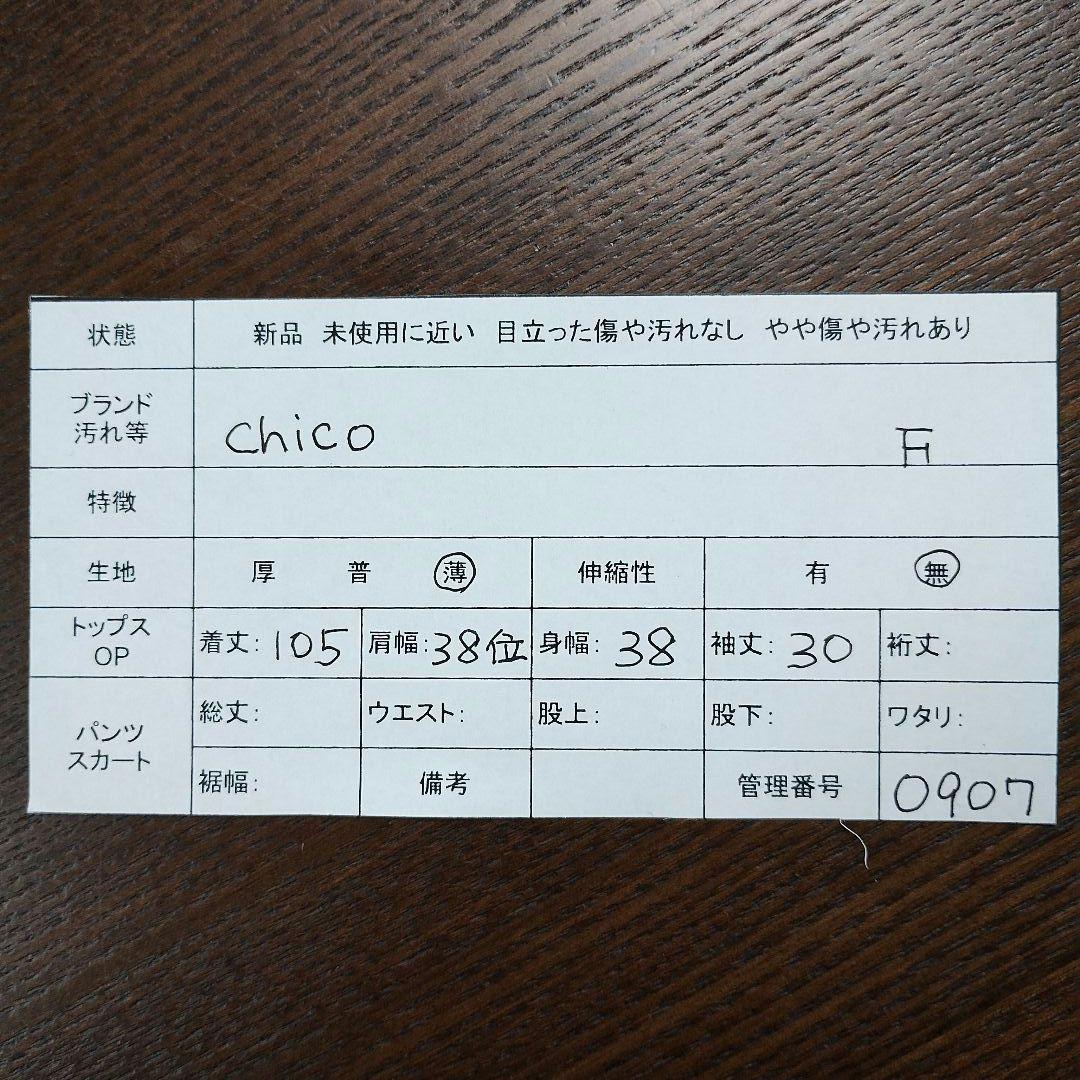 状態 新品 未使用に近い 目立った傷や汚れなし やや傷や汚れあり
ブランド
汚れ等 chico F
特徴
生地 厚 普 薄 伸縮性 有 無
トップス
OP 着丈:105 肩幅:38位 身幅:38 袖丈:30 裄丈:
パンツ
スカート 総丈: ウエスト: 股上: 股下: ワタリ:
裾幅: 備考 管理番号 0907